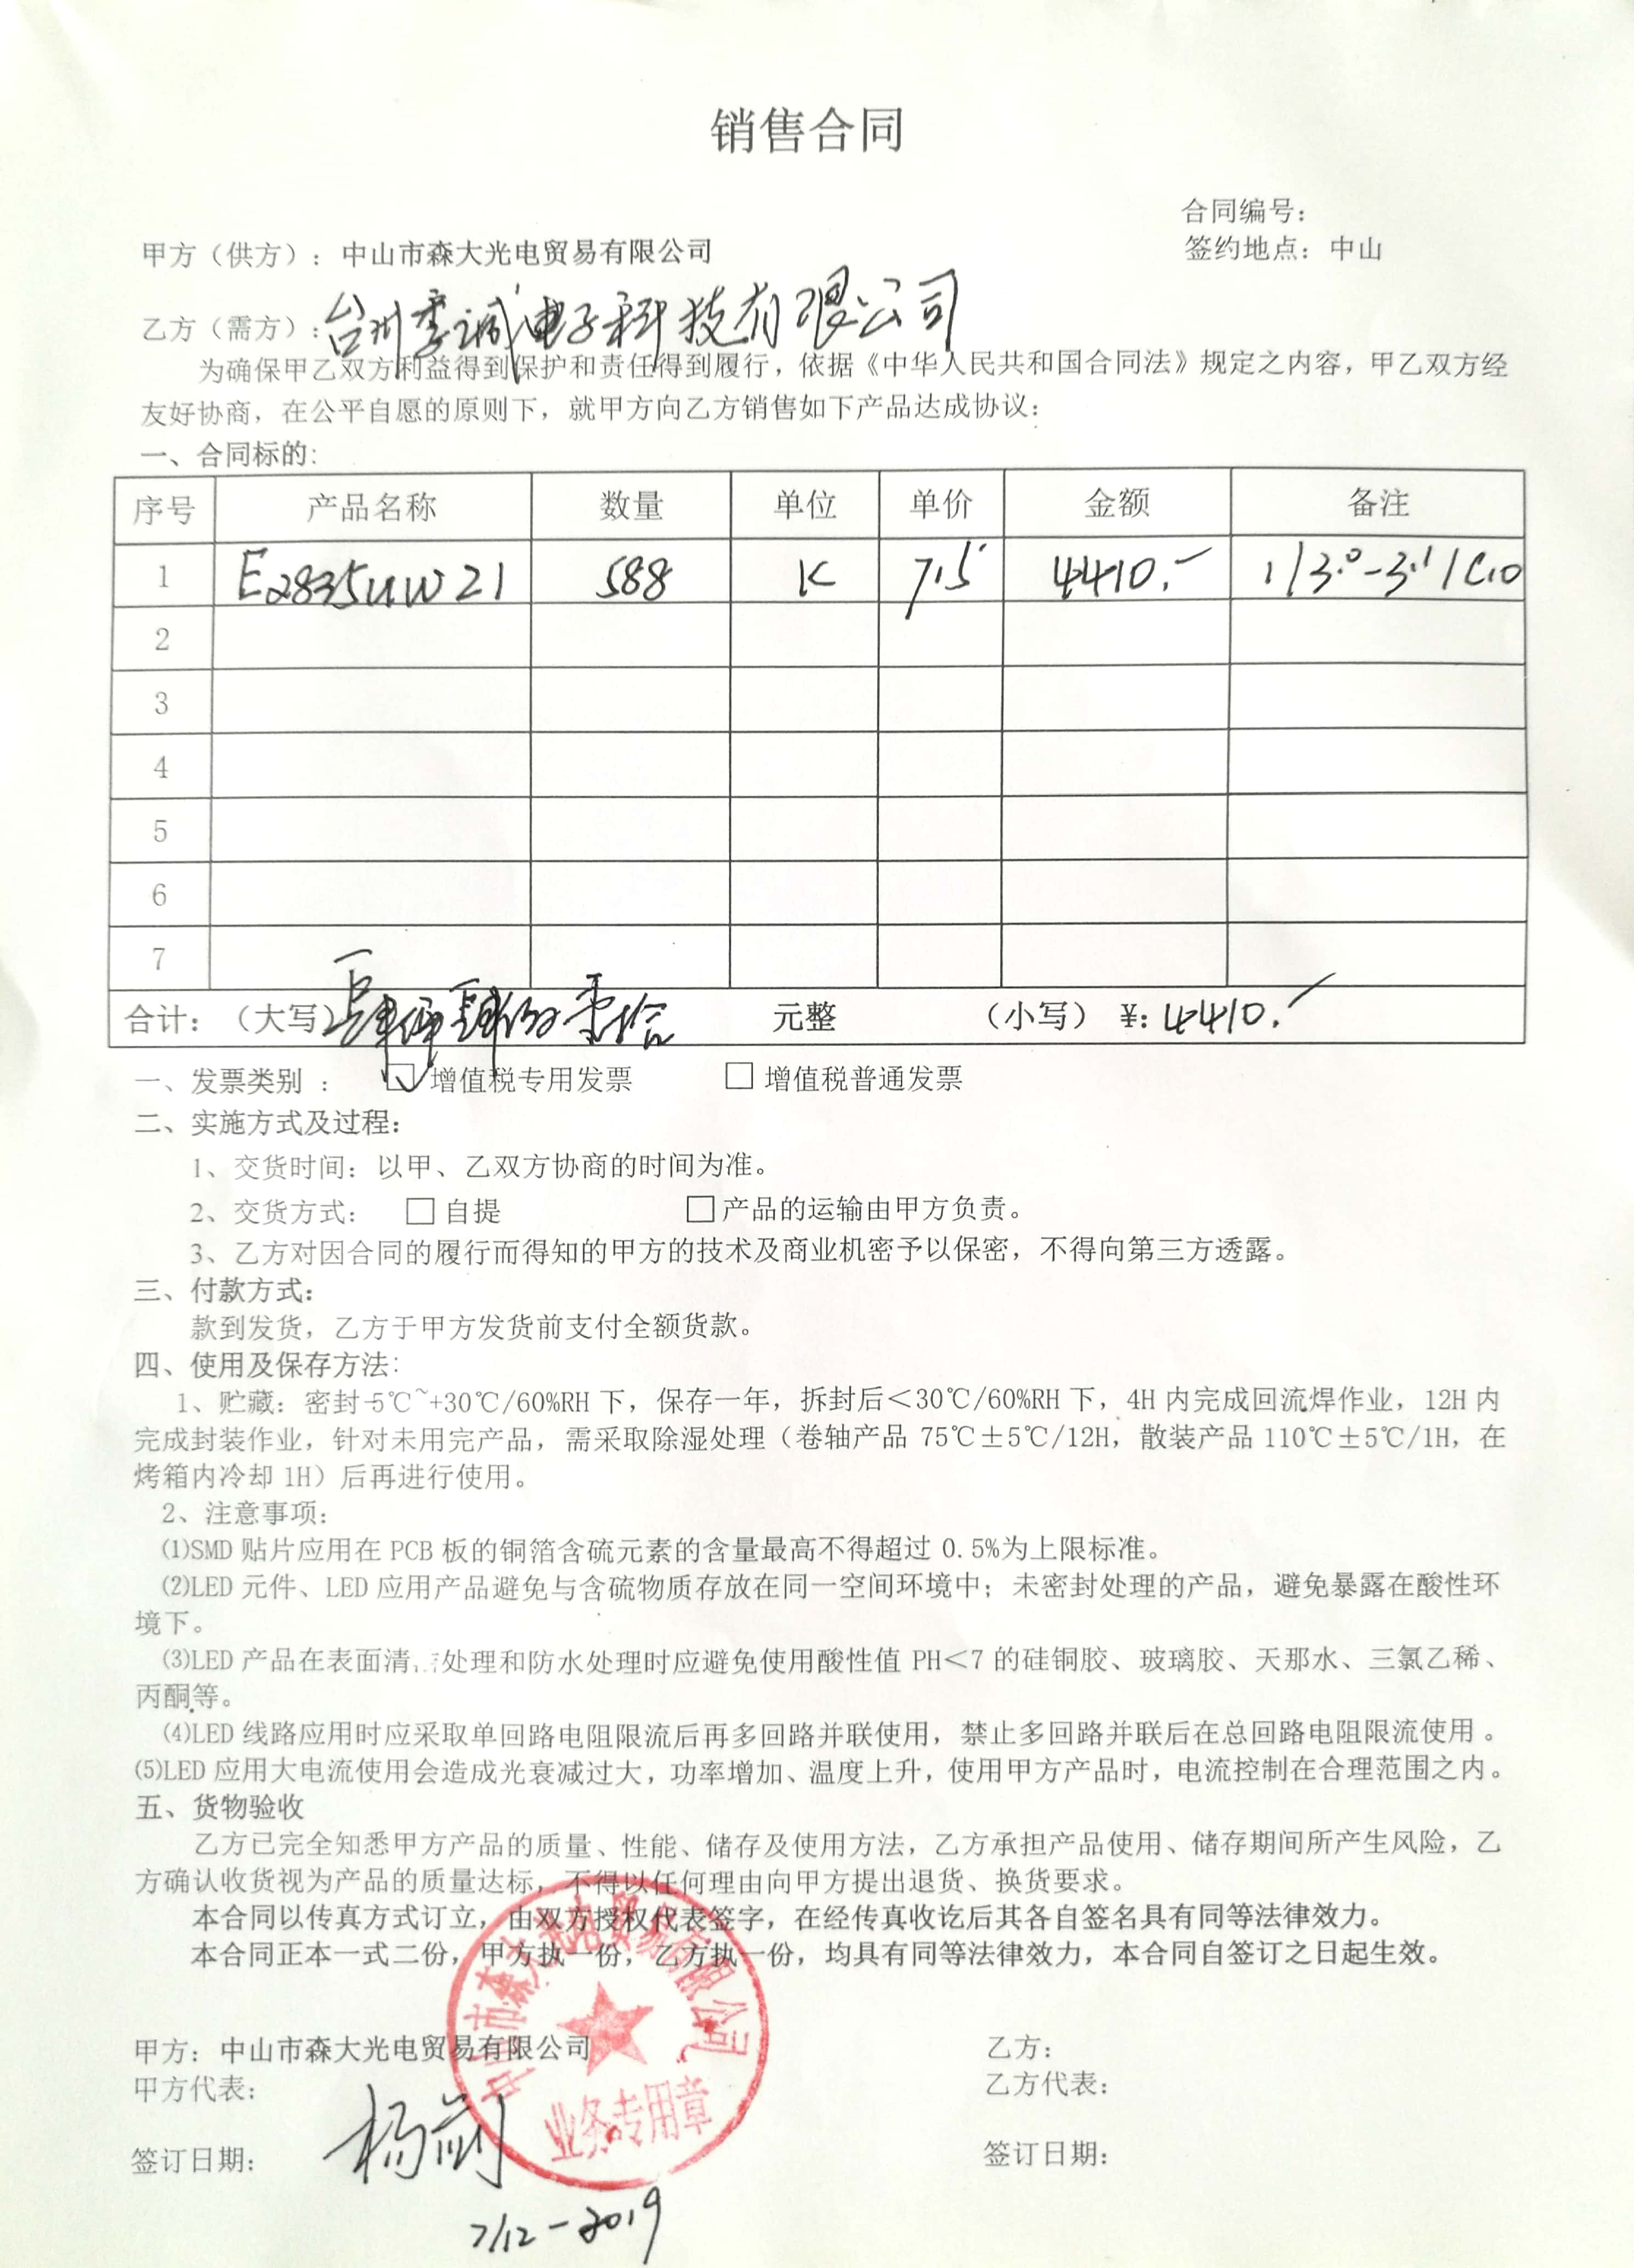 销售合同
合同编号：
甲方（供方）：中山市森大光电贸易有限公司
签约地点：中山
乙方（需方）：台州季诚电子科技有限公司
为确保甲乙双方利益得到保护和责任得到履行，依据《中华人民共和国合同法》规定之内容，甲乙双方经
友好协商，在公平自愿的原则下，就甲方向乙方销售如下产品达成协议：
一、合同标的：
序号 产品名称 数量 单位 单价 金额 备注
1 E2835UW21 588 K 7.5 4410.- 1/3.0-3.1/C10
2
3
4
5
6
7
合计：（大写）肆仟肆佰壹拾 元整 （小写）￥：4410.-
一、发票类别 ： □增值税专用发票 □ 增值税普通发票
二、实施方式及过程：
1、交货时间：以甲、乙双方协商的时间为准。
2、交货方式： □ 自提 □产品的运输由甲方负责。
3、乙方对因合同的履行而得知的甲方的技术及商业机密予以保密，不得向第三方透露。
三、付款方式：
款到发货，乙方于甲方发货前支付全额货款。
四、使用及保存方法：
1、贮藏：密封-5℃~+30℃/60%RH 下，保存一年，拆封后＜30℃/60%RH 下，4H 内完成回流焊作业，12H 内
完成封装作业，针对未用完产品，需采取除湿处理（卷轴产品 75℃±5℃/12H，散装产品 110℃±5℃/1H，在
烤箱内冷却 1H）后再进行使用。
2、注意事项：
⑴SMD 贴片应用在 PCB 板的铜箔含硫元素的含量最高不得超过 0.5%为上限标准。
⑵LED 元件、LED 应用产品避免与含硫物质存放在同一空间环境中；未密封处理的产品，避免暴露在酸性环
境下。
⑶LED 产品在表面清处理和防水处理时应避免使用酸性值 PH＜7 的硅铜胶、玻璃胶、天那水、三氯乙稀、
丙酮等。
⑷LED 线路应用时应采取单回路电阻限流后再多回路并联使用，禁止多回路并联后在总回路电阻限流使用。
⑸LED 应用大电流使用会造成光衰减过大，功率增加、温度上升，使用甲方产品时，电流控制在合理范围之内。
五、货物验收
乙方已完全知悉甲方产品的质量、性能、储存及使用方法，乙方承担产品使用、储存期间所产生风险，乙
方确认收货视为产品的质量达标，不得以任何理由向甲方提出退货、换货要求。
本合同以传真方式订立，由双方授权代表签字，在经传真收讫后其各自签名具有同等法律效力。
本合同正本一式二份，甲方执一份，乙方执一份，均具有同等法律效力，本合同自签订之日起生效。
中山市森大光电贸易有限公司
业务专用章
甲方：中山市森大光电贸易有限公司
乙方：
甲方代表：
乙方代表：
签订日期：
签订日期：
7/12-2019